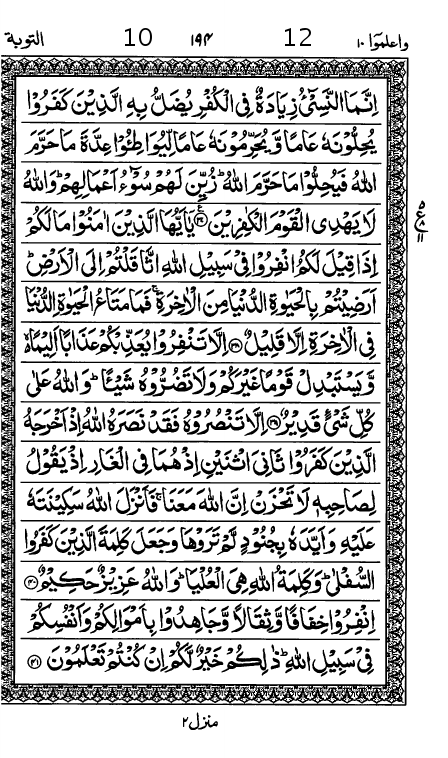 واعلموا ١٠ 12 ١٩٤ 10 التوبة
اِنَّمَا النَّسِيْٓءُ زِيَادَةٌ فِي الْكُفْرِ يُضَلُّ بِهِ الَّذِيْنَ كَفَرُوْا
يُحِلُّوْنَهٗ عَامًا وَّيُحَرِّمُوْنَهٗ عَامًا لِّيُوَاطِـُٔوْا عِدَّةَ مَا حَرَّمَ
اللّٰهُ فَيُحِلُّوْا مَا حَرَّمَ اللّٰهُ ؕ زُيِّنَ لَهُمْ سُوْٓءُ اَعْمَالِهِمْ ؕ وَاللّٰهُ
لَا يَهْدِي الْقَوْمَ الْكٰفِرِيْنَ ﴿۳۷﴾ يٰۤاَيُّهَا الَّذِيْنَ اٰمَنُوْا مَا لَكُمْ
اِذَا قِيْلَ لَكُمُ انْفِرُوْا فِيْ سَبِيْلِ اللّٰهِ اثَّاقَلْتُمْ اِلَى الْاَرْضِ ؕ
اَرَضِيْتُمْ بِالْحَيٰوةِ الدُّنْيَا مِنَ الْاٰخِرَةِ ۚ فَمَا مَتَاعُ الْحَيٰوةِ الدُّنْيَا
فِي الْاٰخِرَةِ اِلَّا قَلِيْلٌ ﴿۳۸﴾ اِلَّا تَنْفِرُوْا يُعَذِّبْكُمْ عَذَابًا اَلِيْمًا ۙ
وَّيَسْتَبْدِلْ قَوْمًا غَيْرَكُمْ وَلَا تَضُرُّوْهُ شَيْـًٔا ؕ وَاللّٰهُ عَلٰى
كُلِّ شَيْءٍ قَدِيْرٌ ﴿۳۹﴾ اِلَّا تَنْصُرُوْهُ فَقَدْ نَصَرَهُ اللّٰهُ اِذْ اَخْرَجَهُ
الَّذِيْنَ كَفَرُوْا ثَانِيَ اثْنَيْنِ اِذْ هُمَا فِي الْغَارِ اِذْ يَقُوْلُ
لِصَاحِبِهٖ لَا تَحْزَنْ اِنَّ اللّٰهَ مَعَنَا ۚ فَاَنْزَلَ اللّٰهُ سَكِيْنَتَهٗ
عَلَيْهِ وَاَيَّدَهٗ بِجُنُوْدٍ لَّمْ تَرَوْهَا وَجَعَلَ كَلِمَةَ الَّذِيْنَ كَفَرُوا
السُّفْلٰى ؕ وَكَلِمَةُ اللّٰهِ هِيَ الْعُلْيَا ؕ وَاللّٰهُ عَزِيْزٌ حَكِيْمٌ ﴿۴۰﴾
اِنْفِرُوْا خِفَافًا وَّثِقَالًا وَّجَاهِدُوْا بِاَمْوَالِكُمْ وَاَنْفُسِكُمْ
فِيْ سَبِيْلِ اللّٰهِ ؕ ذٰلِكُمْ خَيْرٌ لَّكُمْ اِنْ كُنْتُمْ تَعْلَمُوْنَ ﴿۴۱﴾
منزل ۲